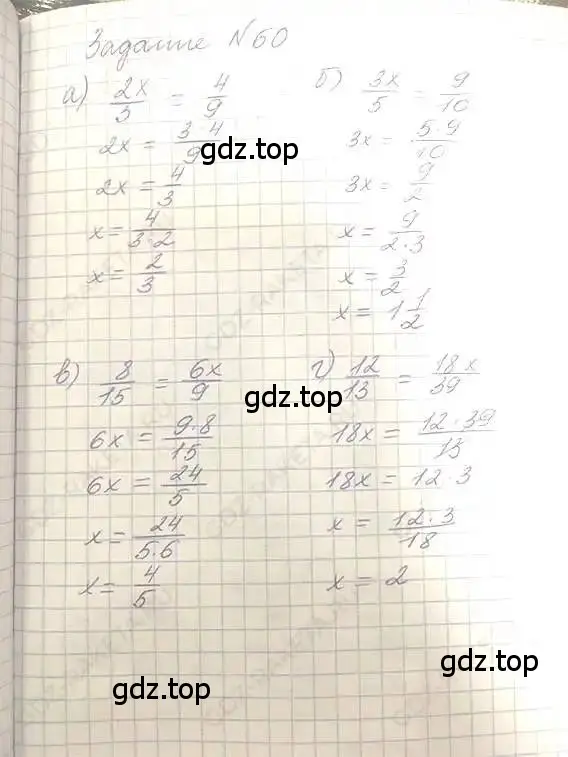 Задание №60
а) 2x/3 = 4/9
2x = 3·4/9
2x = 4/3
x = 4/3·2
x = 2/3
б) 3x/5 = 9/10
3x = 5·9/10
3x = 9/2
x = 9/2·3
x = 3/2
x = 1 1/2
в) 8/15 = 6x/9
6x = 9·8/15
6x = 24/5
x = 24/5·6
x = 4/5
г) 12/13 = 18x/39
18x = 12·39/13
18x = 12·3
x = 12·3/18
x = 2
gdz.top
gdz.top
gdz.top
gdz.top
gdz.top